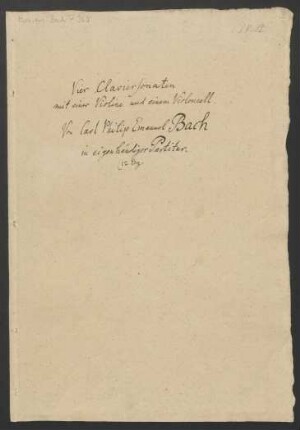 Vier Claviersonaten
mit einer Violine und einem Violoncell.
Von Carl Philip Emanuel Bach
in eigenhändiger Partitur.